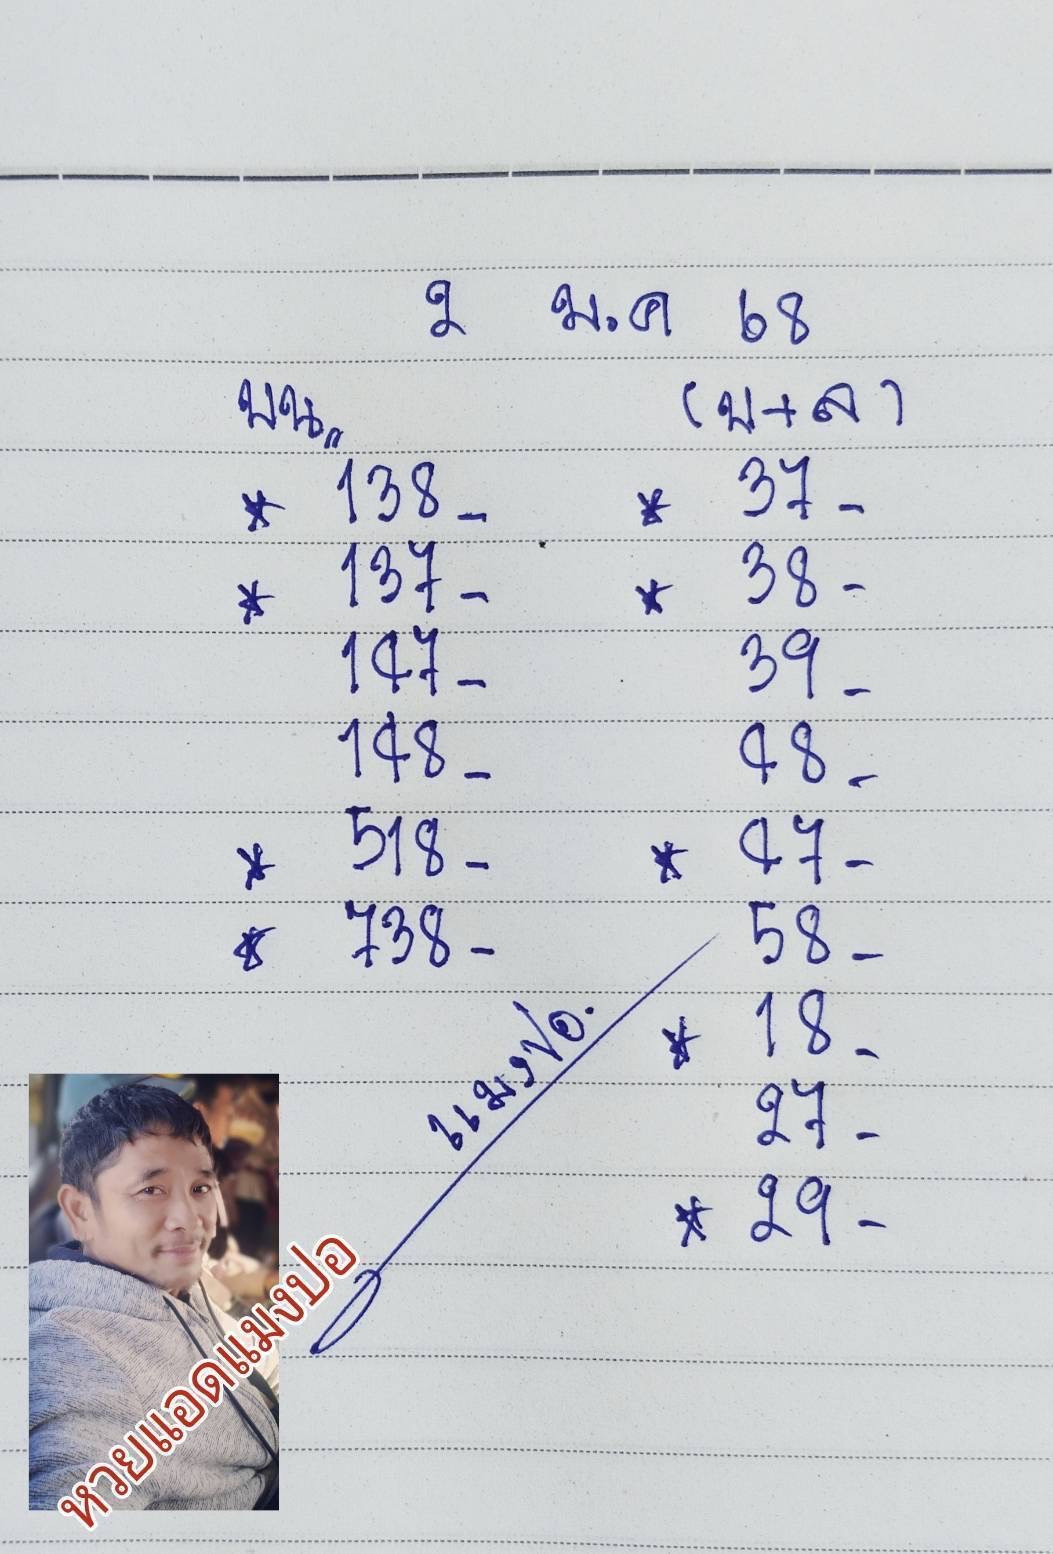 2 ม.ค 68
บน. (บ+ล)
* 138- * 37-
* 137- * 38-
147- 39-
148- 48-
* 518- * 47-
* 738- 58-
* 18-
27-
* 29-
แมงปอ.
หวยแอดแมงปอ